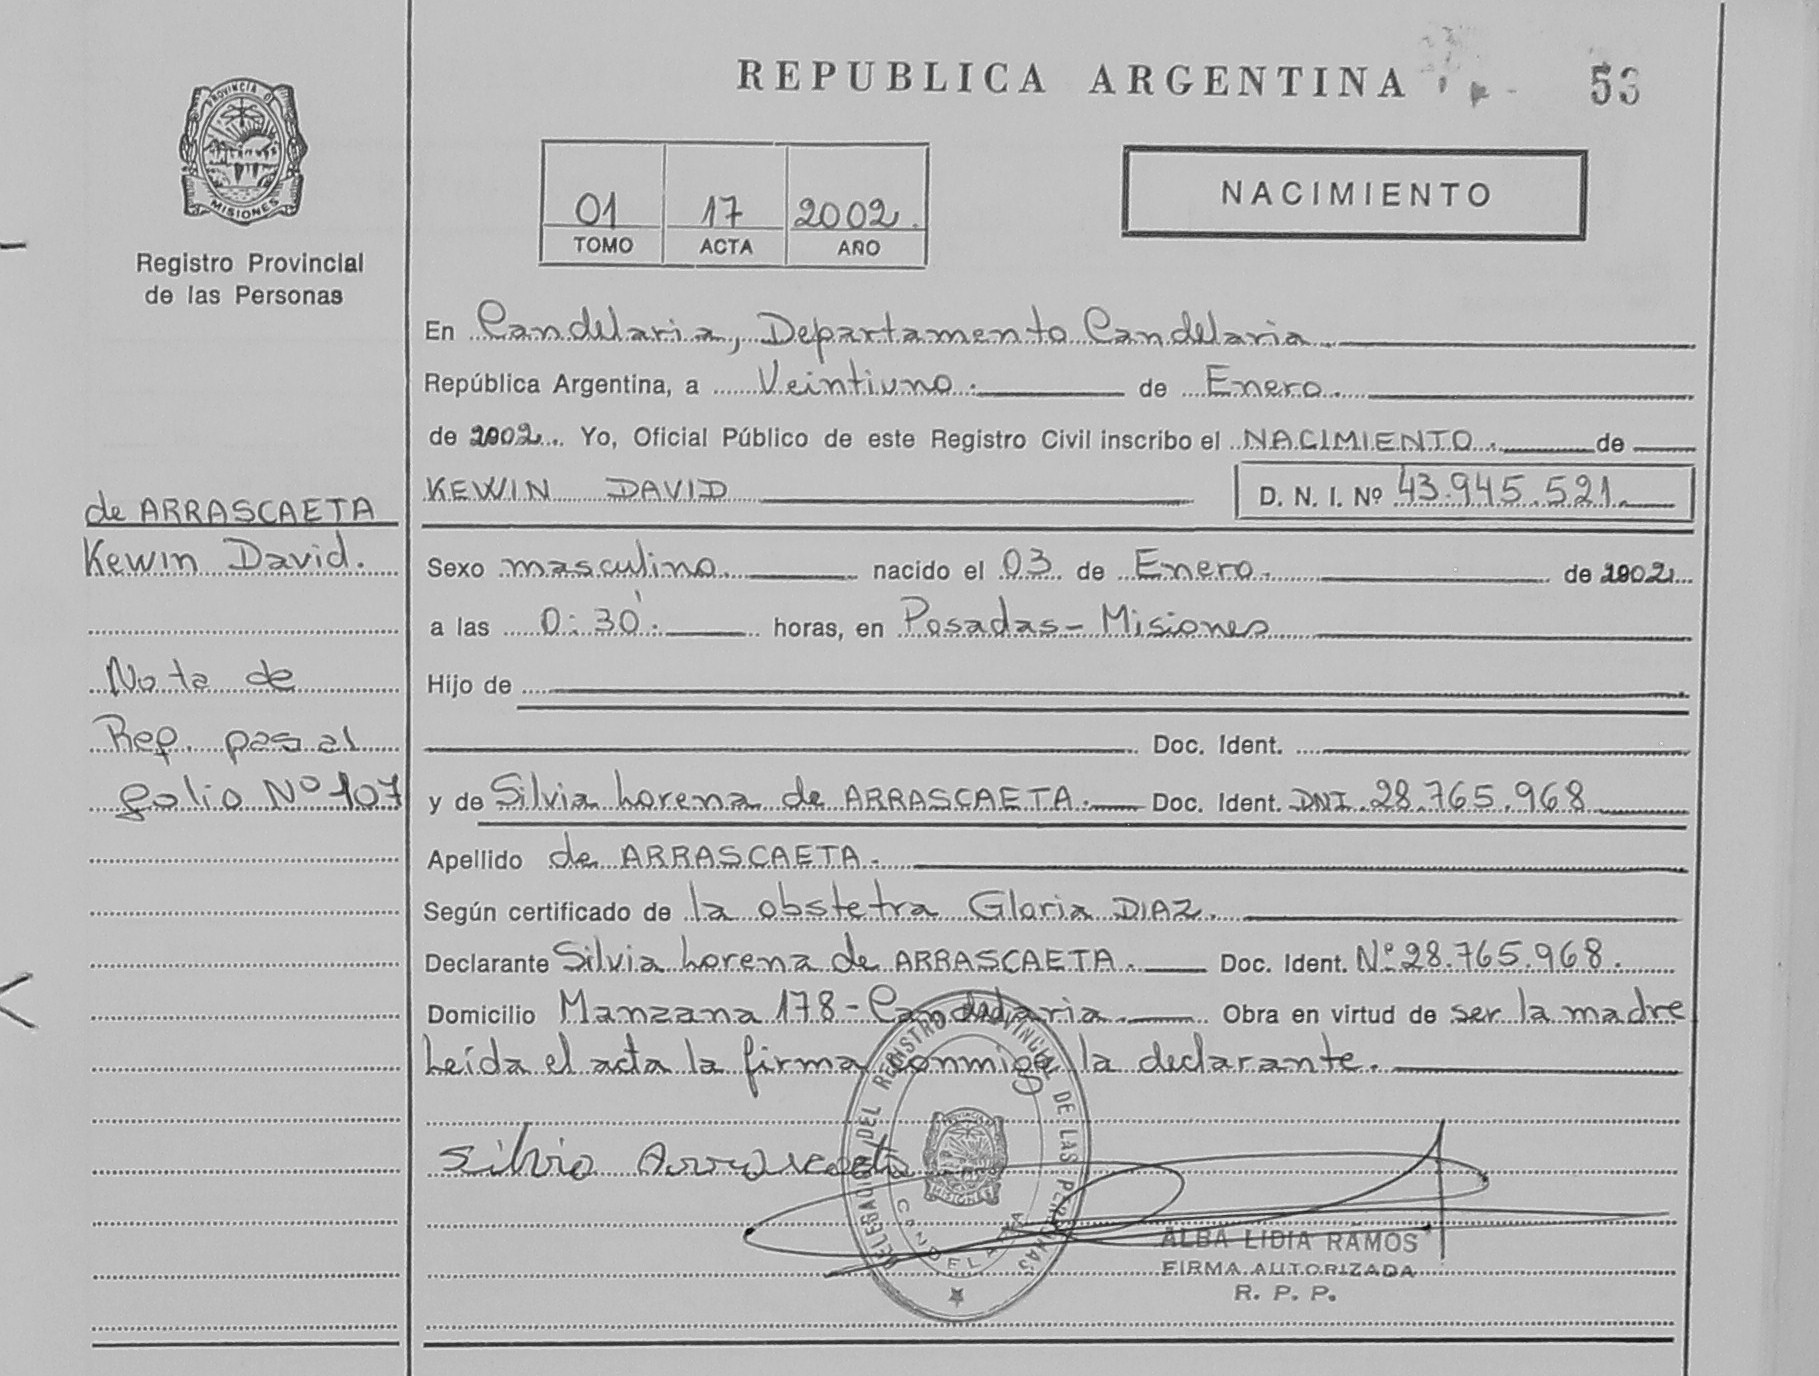 REPUBLICA ARGENTINA
53
PROVINCIA DE
MISIONES
Registro Provincial
de las Personas
01 17 2002.
TOMO ACTA AÑO
NACIMIENTO
En Candelaria, Departamento Candelaria
República Argentina, a Veintiuno. de Enero.
de 2002. Yo, Oficial Público de este Registro Civil inscribo el NACIMIENTO. de
KEWIN DAVID D. N. I. Nº 43.945.521.
Sexo masculino. nacido el 03 de Enero. de 2002
a las 0:30'. horas, en Posadas - Misiones
Hijo de
Doc. Ident.
y de Silvia Lorena de ARRASCAETA. Doc. Ident. DNI 28.765.968
Apellido de ARRASCAETA.
Según certificado de la obstetra Gloria DIAZ.
Declarante Silvia Lorena de ARRASCAETA. Doc. Ident. Nº 28.765.968.
Domicilio Manzana 178 - Candelaria. Obra en virtud de ser la madre
Leída el acta la firma conmigo la declarante.
de ARRASCAETA
Kewin David.
Nota de
Rep. pas al
folio Nº 107
Silvia Arrascaeta
DELEGACION DEL REGISTRO PROVINCIAL DE LAS PERSONAS
CANDELARIA
PROVINCIA DE
MISIONES
ALBA LIDIA RAMOS
FIRMA AUTORIZADA
R. P. P.